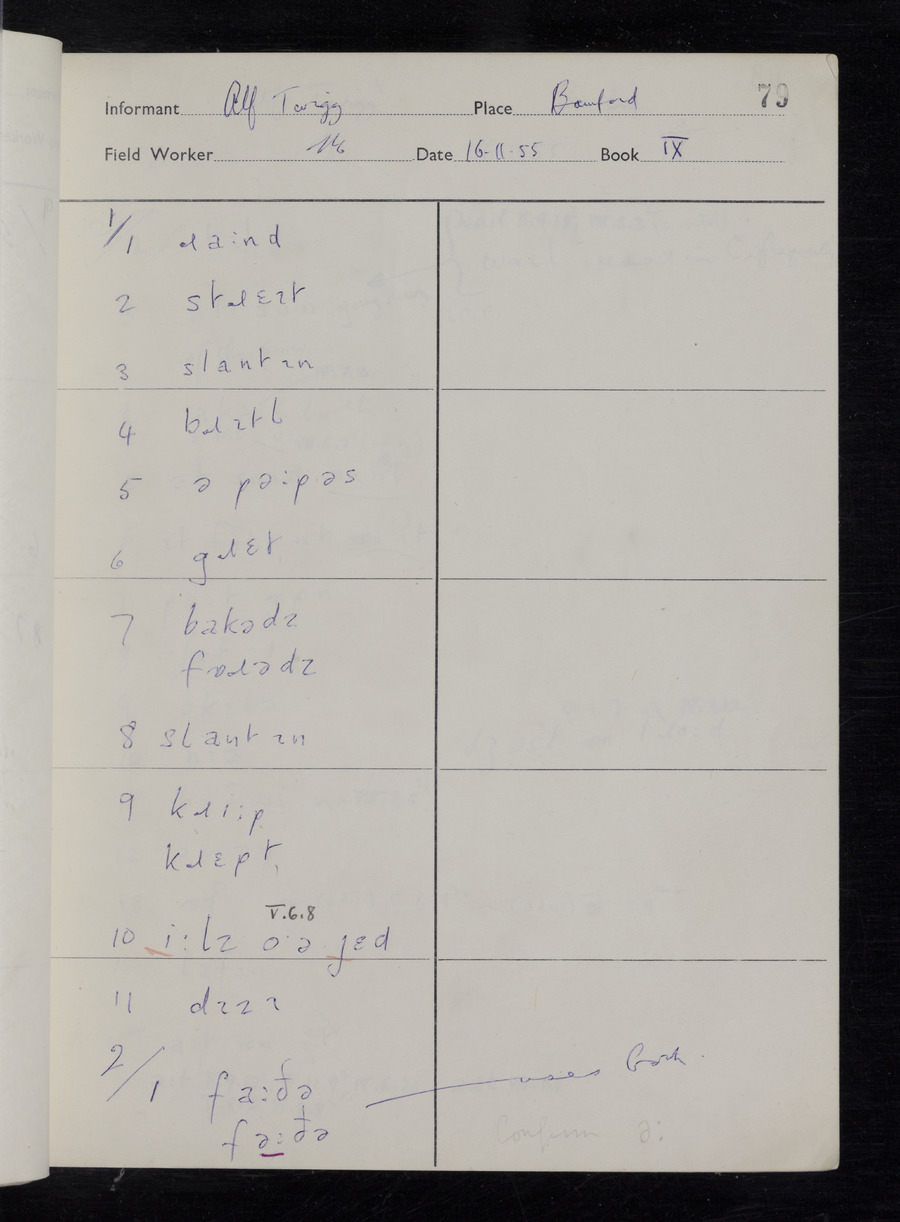 Informant Alf Twigg Place Bamford 79
Field Worker Date 16-11-55 Book IX
1/1 ɹa:nd
2 stɹɛɪt
3 slantɪn
4 bɹɪtl
5 ə pə:pəs
6 gɹɛt
7 bakədz
fɒɹədz
8 slantɪn
9 kɹi:p
kɹɛpt
V.6.8
10 i:lz o·ə jɛd
11 dɪzɪ
2/1 fa:ðə uses both.
fə:ðə Confirm ə: